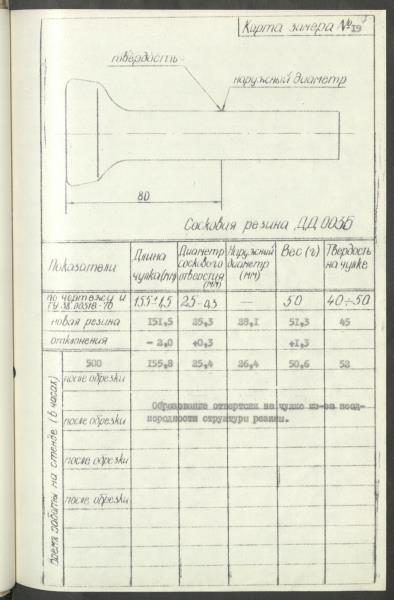 Карта замера № 19
твердость
наружный диаметр
80
Сосковая резина ДД.00.35
Показатели Длина чулка(мм) Диаметр соскового отверстия (мм) Наружный диаметр (мм) Вес (г) Твердость на чулке
по чертежу и 155±1,5 25-0,3 — 50 40÷50
новая резина 151,5 25,3 28,1 51,3 45
отклонения - 2,0 +0,3 +1,3
500 155,8 25,4 26,4 50,6 52
после обрезки
Образование отверстия на чулке из-за неод-
после обрезки
нородности структуры резины.
после обрезки
после обрезки
Время работы на стенде (в часах)